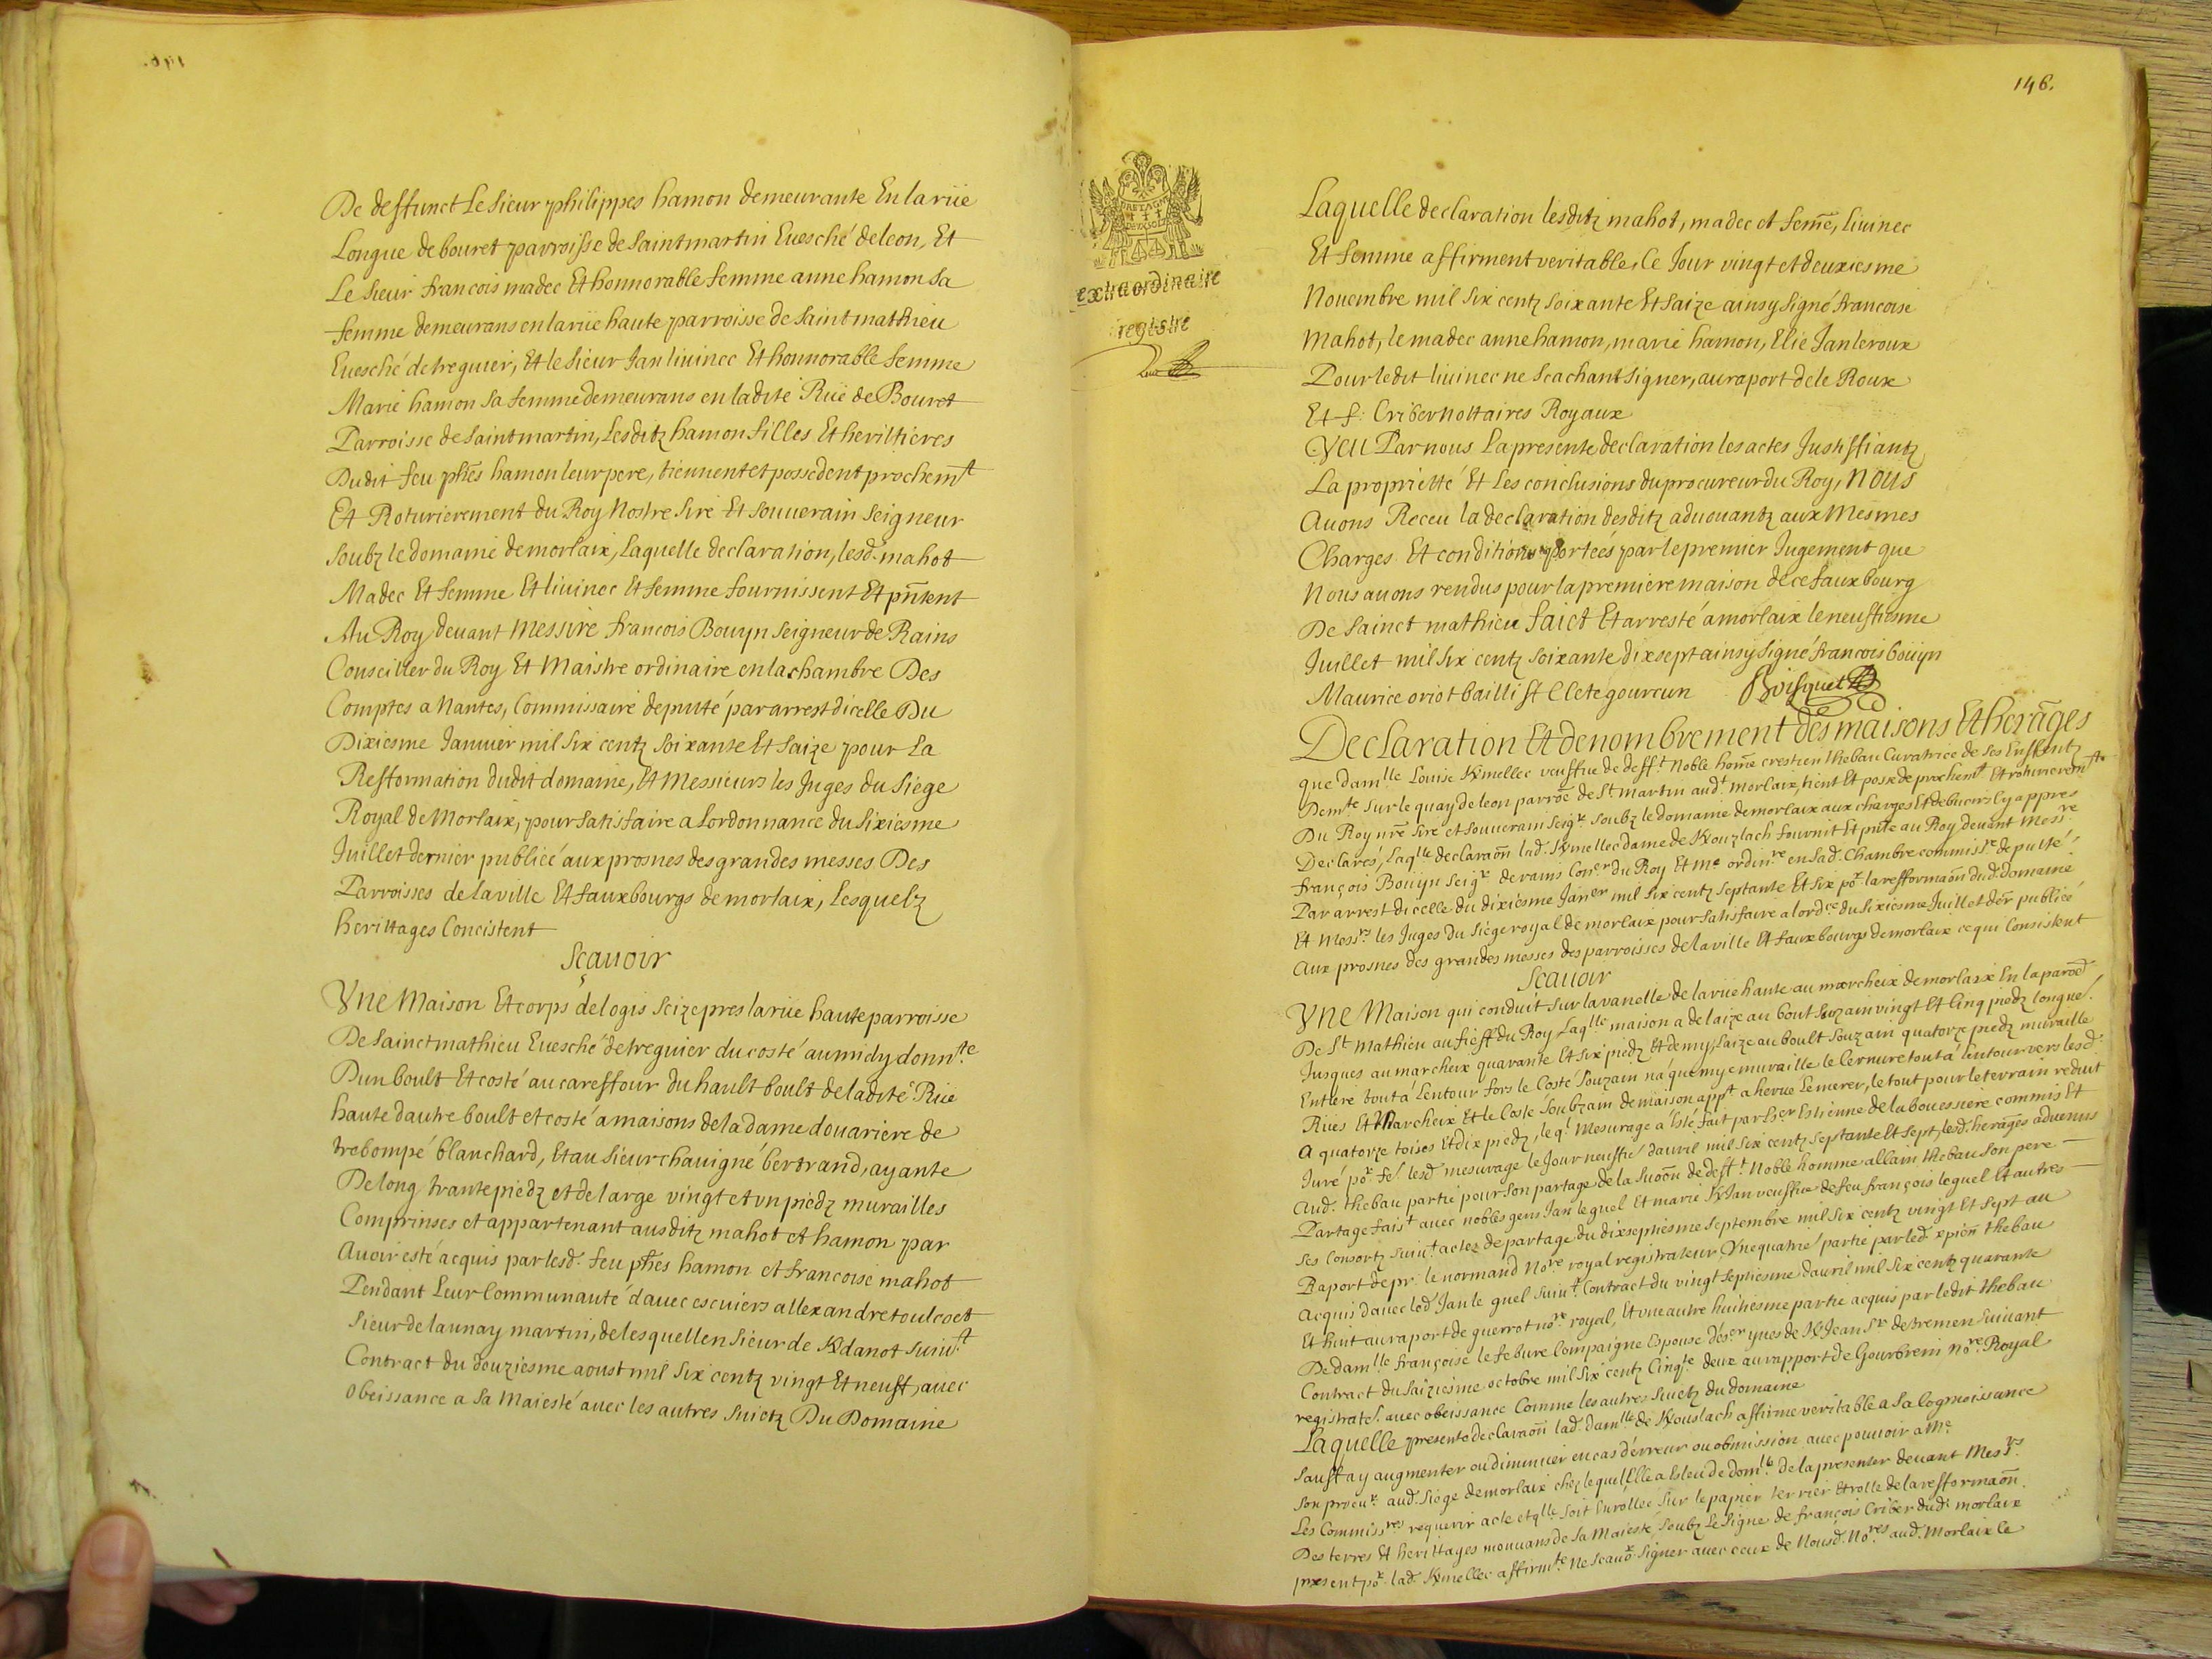 De deffunct Le Sieur philippes hamon demeurante En la rüe
Longue de bouret parroisse de Saint martin Euesché de leon, Et
Le Sieur francois madec Et honnorable femme anne hamon Sa
femme demeurans en la rüe haute parroisse de Saint mathieu
Euesché de treguier, Et le Sieur Jan liuinec Et honnorable femme
Marie hamon Sa femme demeurans en ladite Rüe de Bouret
Parroisse de Saint martin, Lesditz hamon filles Et herittieres
Dudit feu phēs hamon leur pere, tiennent et possedent prochem̄t
Et Roturierement du Roy Nostre Sire Et Souuerain Seigneur
Soubz le domaine de morlaix, Laquelle declaration, lesd. mahot
Madec Et femme Et liuinec Et femme fournissent Et pñtent
Au Roy deuant Messire francois Bouyn Seigneur de Rains
Conseiller du Roy Et Maistre ordinaire en la chambre Des
Comptes a Nantes, Commissaire deputé par arrest dicelle Du
Dixiesme Januier mil Six centz Soixante Et Saize pour La
Refformation dudit domaine, Et Messieurs les Juges du Siege
Royal de Morlaix, pour Satisfaire a Lordonnance du Sixiesme
Juillet dernier publieé aux prosnes des grandes messes Des
Parroisses de la ville Et fauxbourgs de morlaix, Lesquelz
herittages Concistent
Sçauoir
Vne Maison Et corps de logis Seize pres la rüe haute parroisse
De Sainct mathieu Euesché de treguier du costé au midy donn.te
Dun boult Et costé au careffour du hault boult de ladite Rüe
haute dautre boult et costé a maisons de la dame douariere de
trebompé blanchard, Et au Sieur chauigné bertrand, ayante
De long trante piedz et de large vingt et vn piedz murailles
Comprinses et appartenant ausditz mahot et hamon par
Auoir esté acquis par lesd. feu phēs hamon et francoise mahot
Pendant Leur Communauté dauec escuiers allexandre toulcoet
Sieur de launay martin, de lesquellen Sieur de Kdanot Suiu.t
Contract du douziesme aoust mil Six centz vingt Et neuff, auec
obeissance a Sa Maiesté auec les autres Suietz Du Domaine
146.
extraordinaire
registre
Laquelle declaration lesditz mahot, madec et fem̄e, liuinec
Et femme affirment veritable, Ce Jour vingt et deuxiesme
Nouembre mil Six centz Soixante Et Saize ainsy Signé francoise
Mahot, le madec anne hamon, marie hamon, Elie Jan leroux
Pour ledit liuinec ne Scachant Signer, au raport de le Roux
Et f: Criber nottaires Royaux
Veu Par nous La presente declaration les actes Justiffiantz
La proprietté Et Les conclusions du procureur du Roy, Nous
Auons Receu la declaration desditz aduouantz aux Mesmes
Charges Et conditions porteés par le premier Jugement que
Nous auons rendus pour la premiere maison de ce fauxbourg
De Sainct mathieu faict Et arresté a morlaix le neuffiesme
Juillet mil Six centz Soixante dix sept ainsy Signé francois boüyn
Maurice oriot bailli
Declaration Et denombrement des maisons Et herāges
que dam.lle Louise Kmellec veuffue de deff.t Noble hom̄e crestien thebau Curatrice de Ses Enffentz
Dem.te Sur le quay de leon parroē de S.t martin aud.t morlaix, tient Et possede prochem.t Et roturierem.t
Du Roy nr̄e Sire et Souuerain Seig.r Soubz le domaine de morlaix aux charges Et debuoirs Cy appres
Declares, Laq.lle declaraōn lad. Kmellec dame de Kouzlach fournit Et pñte au Roy deuant Mess.re
françois Boüyn Seig.r de rains Con.er du Roy Et m.e ordin.re en Sad. Chambre commiss.re deputté
Par arrest dicelle du dixiesme Jan.er mil Six centz Septante Et Six po.r la refformaōn dud. domaine
Et Mess.rs les Juges du Siege royal de morlaix pour Satisfaire a lord.ce du Sixiesme Juillet der̄ publieé
aux prosnes des grandes messes des parroisses de la ville Et fauxbourgs de morlaix ce qui Consistent
Scauoir
Vne Maison qui conduit Sur la vanelle de la rüe haute au marcheix de morlaix En la paroē
De S.t Mathieu au fieff du Roy Laq.lle maison a de laize au bout Suzain vingt Et Cinq piedz longue
Jusques au marcheix quarante Et Six piedz Et demy, Laize au boult Souzain quatorze piedz muraille
Entiere tout a Lentour fors le Costé Souzain na que mye muraille le Cernure tout a Lentour vers lesd.
Rües Et Marcheix Et le Costé Soubzain de maison app.t a herue Lemerer, le tout pour le terrain reduit
A quatorze toises Et dix piedz, le q.l Mesurage a Esté fait par Estienne de la bouessiere commis Et
Juré po.r fe. lesd. mesurage le Jour neuffie dauril mil Six centz Septante Et Sept, lesd. herāges aduenus
Aud. thebau partie pour Son partage de la Suōn de deff.t Noble homme allain thebau Son pere
Partage fais.t auec nobles gens Jan leguel Et marie KJan veuffue de feu françois leguel Et autres
Ses Consortz Suiu.t actes de partage du dixseptiesme Septembre mil Six centz vingt Et Sept au
Raport de pr. le normand No.re royal registrateur Vne quatrie partie par led. xpien̄ thebau
Acquis dauec led. Jan le guel Suiu.t Contract du vingt Septiesme dauril mil Six centz quarante
Et huit au raport de guerrot no.re royal, Et vne autre huitiesme partie acquis par ledit thebau
De dam.lle françoise le febure Compaigne Espouse dés.er yues de KJean S.r de tremen Suiuant
Contract du Saiziesme octobre mil Six centz Cinq.te deux au rapport de Gourbrein no.re Royal
registrate.r auec obeissance Comme les autres Suietz du domaine
Laquelle presente declaraōn lad. dam.lle de Kouslach affirme veritable a Sa Cognoissance
Sauff a y augmenter ou diminuier en cas derreur ou obmission auec pouuoir a M.e
Son procu.r aud. Siege de morlaix chez lequel Elle a Esleu de dom.lle de la presenter deuant Mess.rs
Les Commiss.res requerir acte et q.lle Soit Enrollee Sur le papier terrier Et rolle de la refformaōn
Des terres Et herittages mouuans de Sa Maiesté, Soubz Le Signe de françois Criber dud.t morlaix
present po.r lad. Kmellec affirm.te Ne Scauo.r Signer auec ceux de Nousd. No.res aud. Morlaix le